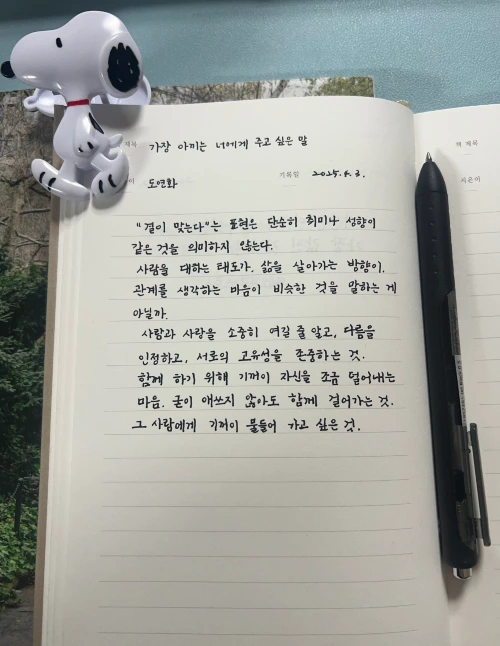 책 제목 가장 아끼는 너에게 주고 싶은 말
이 도연화 기록일 2025.6.3.
"결이 맞는다"는 표현은 단순히 취미나 성향이
같은 것을 의미하지 않는다.
사람을 대하는 태도가, 삶을 살아가는 방향이,
관계를 생각하는 마음이 비슷한 것을 말하는 게
아닐까.
사람과 사랑을 소중히 여길 줄 알고, 다름을
인정하고, 서로의 고유성을 존중하는 것.
함께 하기 위해 기꺼이 자신을 조금 덜어내는
마음. 굳이 애쓰지 않아도 함께 걸어가는 것.
그 사람에게 기꺼이 물들어 가고 싶은 것.
책 제목
지은이